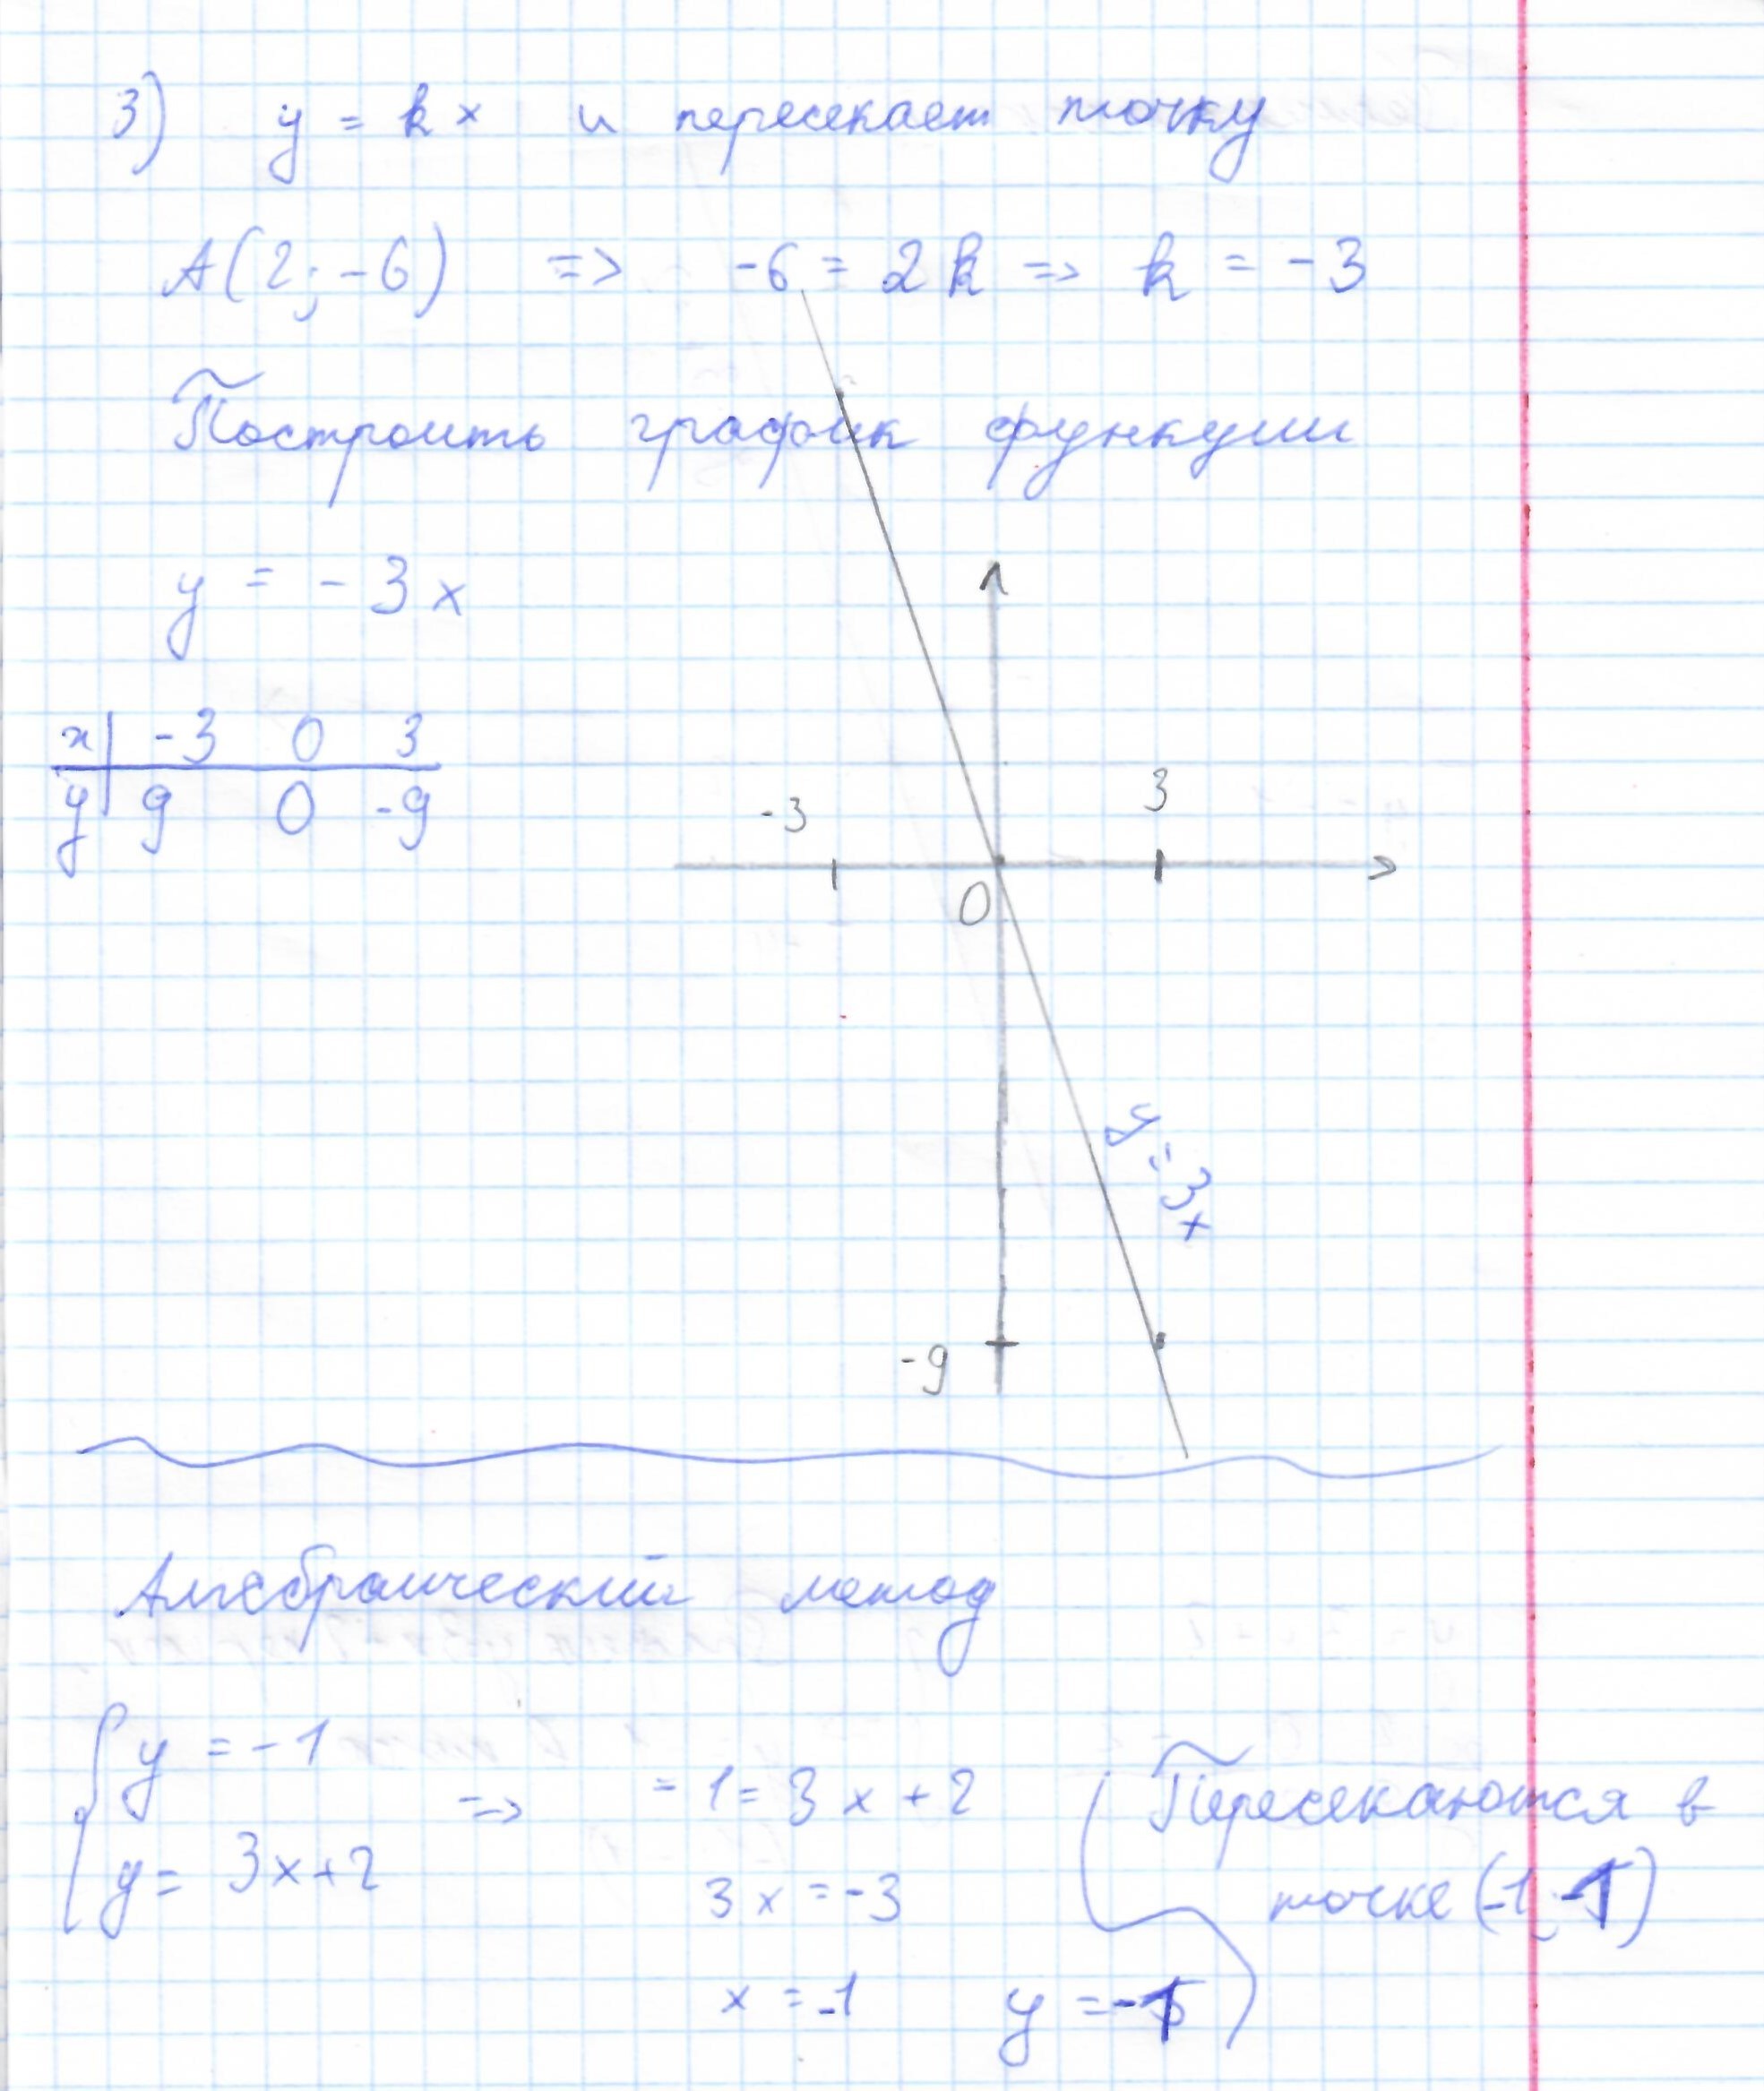 3) y = kx и пересекает точку
A(2; -6) => -6 = 2k => k = -3
Построить график функции
y = -3x
x | -3 0 3
y | 9 0 -9
-3
3
0
y = 3x
-9
Алгебраический метод
y = -1
y = 3x+2
=>
-1 = 3x + 2
3x = -3
x = -1 y = -1
Пересекаются в
точке (-1; -1)